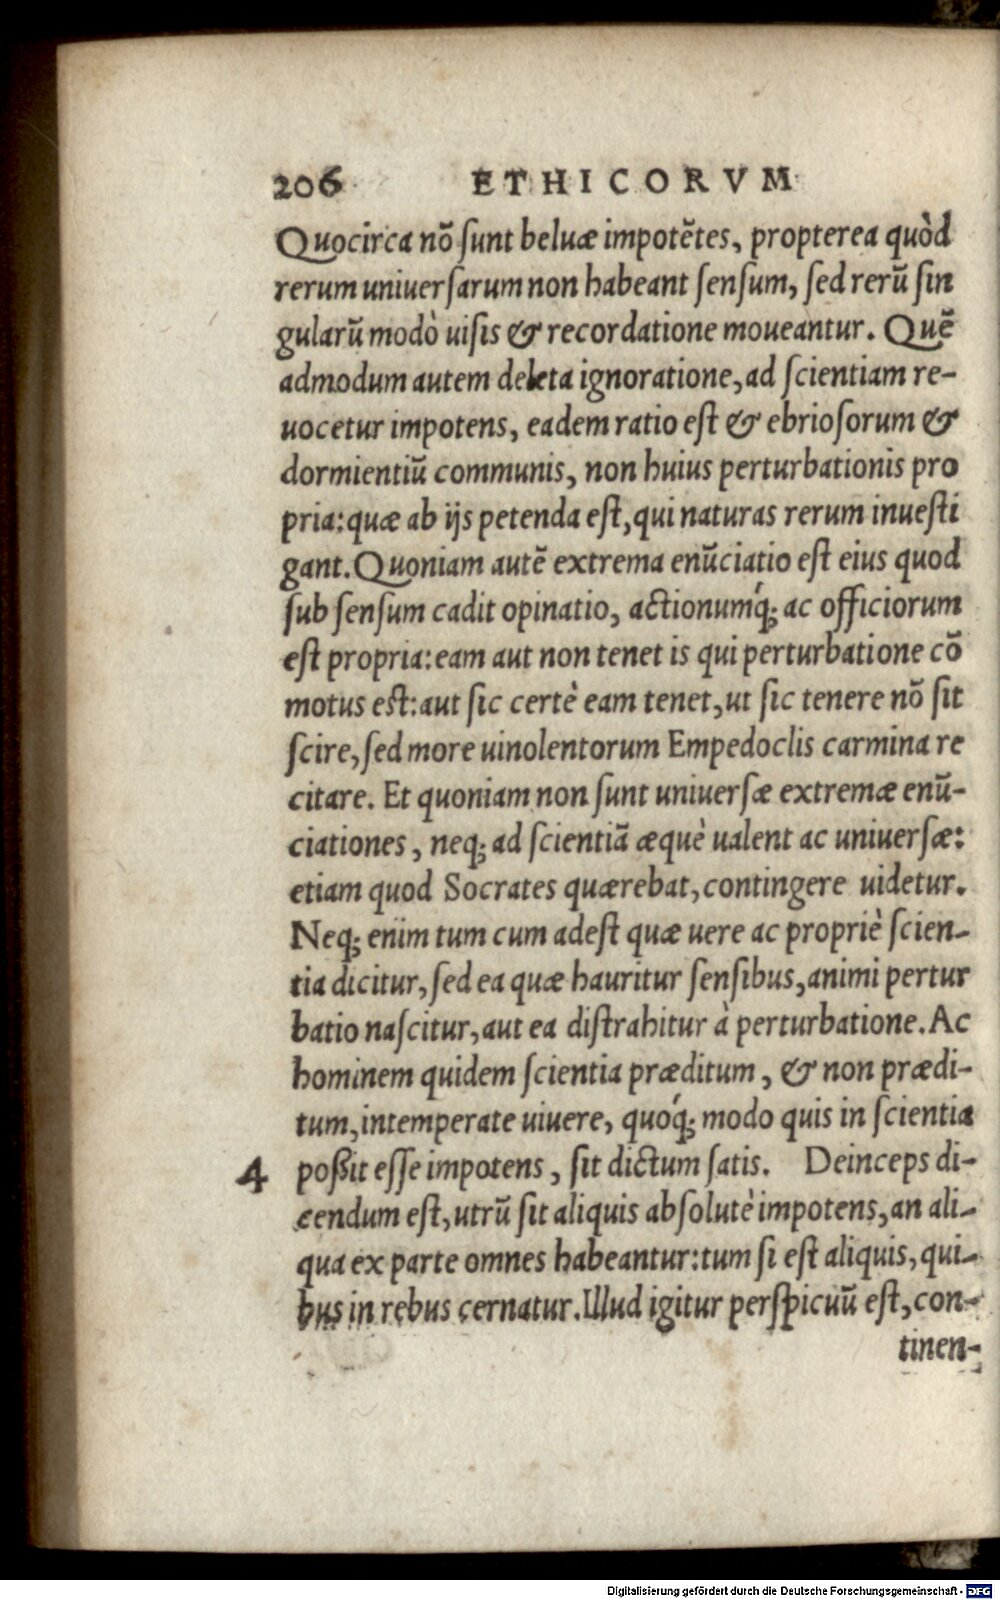 206 ETHICORVM
Quocirca nō sunt beluæ impotētes, propterea quòd
rerum uniuersarum non habeant sensum, sed rerū sin
gularū modò uisis & recordatione moueantur. Quē
admodum autem deleta ignoratione, ad scientiam re-
uocetur impotens, eadem ratio est & ebriosorum &
dormientiū communis, non huius perturbationis pro
pria: quæ ab ijs petenda est, qui naturas rerum inuesti
gant. Quoniam autē extrema enūciatio est eius quod
sub sensum cadit opinatio, actionumq́; ac officiorum
est propria: eam aut non tenet is qui perturbatione cō
motus est: aut sic certè eam tenet, ut sic tenere nō sit
scire, sed more uinolentorum Empedoclis carmina re
citare. Et quoniam non sunt uniuersæ extremæ enū-
ciationes, neq; ad scientiā æquè ualent ac uniuersæ:
etiam quod Socrates quærebat, contingere uidetur.
Neq; enim tum cum adest quæ uere ac propriè scien-
tia dicitur, sed ea quæ hauritur sensibus, animi pertur
batio nascitur, aut ea distrahitur à perturbatione. Ac
hominem quidem scientia præditum, & non prædi-
tum, intemperate uiuere, quoq́; modo quis in scientia
4 poßit esse impotens, sit dictum satis. Deinceps di-
cendum est, utrū sit aliquis absolutè impotens, an ali-
qua ex parte omnes habeantur: tum si est aliquis, qui-
bus in rebus cernatur. Illud igitur perspicuū est, con-
tinen-
Digitalisierung gefördert durch die Deutsche Forschungsgemeinschaft - DFG